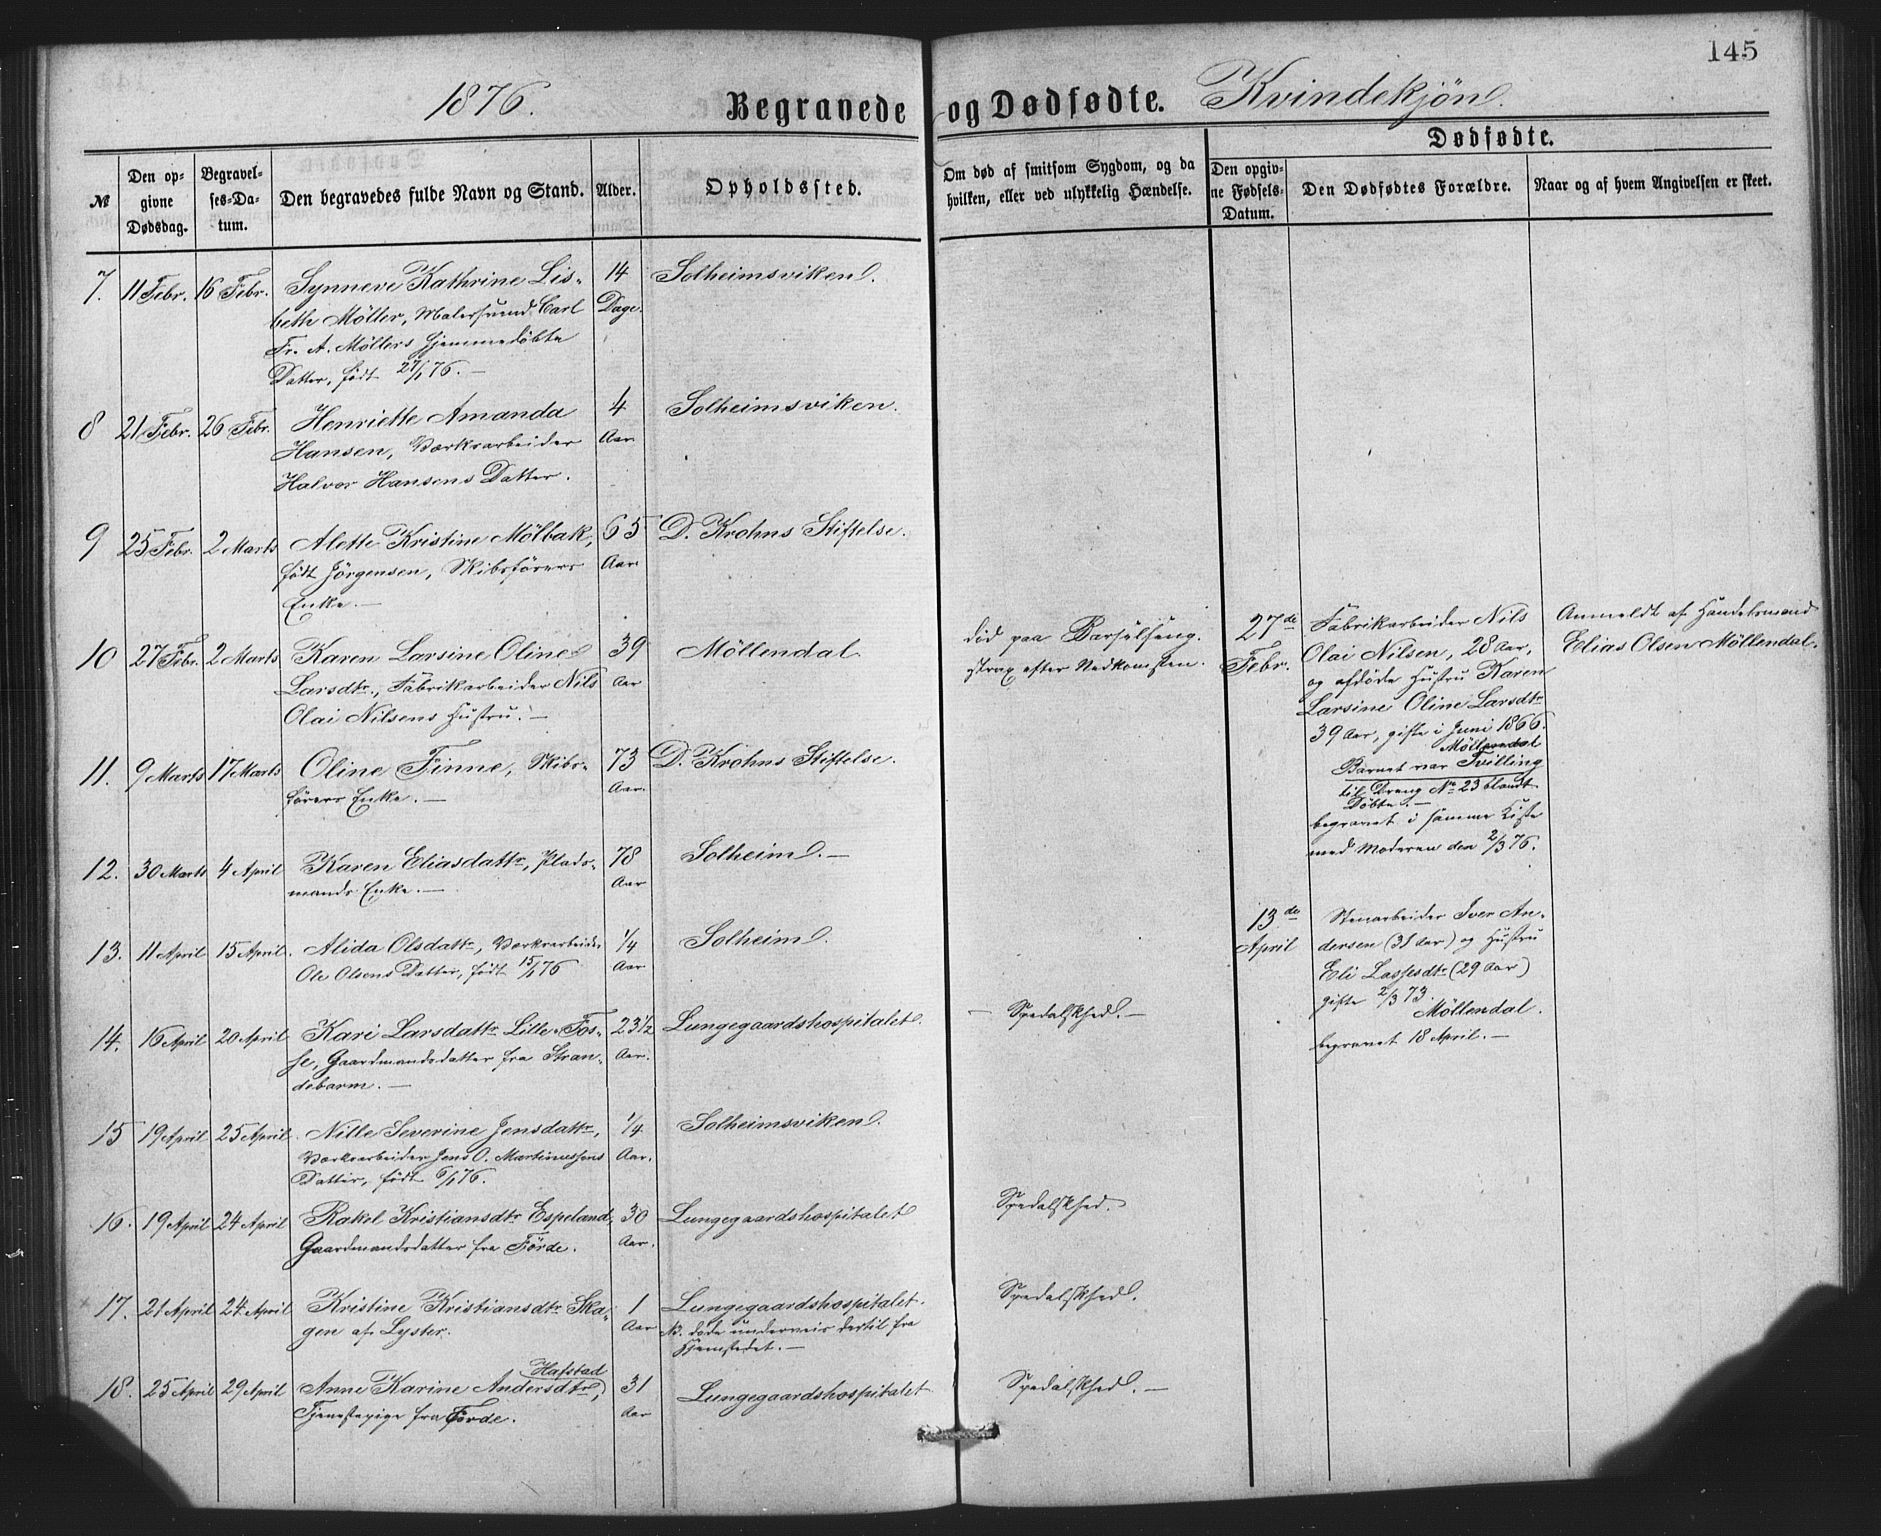 145
1876. Begravede og Dødfødte. Kvindekjøn.
№
Den opgivne Dødsdag.
Begravelses-Datum.
Den begravedes fulde Navn og Stand.
Alder.
Opholdssted.
Om død af smitsom Sygdom, og da hvilken, eller ved ulykkelig Hændelse.
Dødfødte.
Den opgivne Fødsels-Datum.
Den Dødfødtes Forældre.
Naar og af hvem Angivelsen er skeet.
7. 11 Febr. 16 Febr. Synneve Kathrine Lis- 14 Solheimsviken.
beth Möller, Malersvend Carl Dage
Fr. A. Möllers hjemmedøbte
Datter, født 27/1 76. —
8 21 Febr. 26 Febr. Henriette Amanda 4 Solheimsviken.
Hansen, Værksarbeider Aar
Halvor Hansens Datter.
9 25 Febr. 2 Marts Alette Kristine Mölbak, 65 D. Krohns Stiftelse.
født Jörgensen, Skibsförers Aar
Enke. —
10 27 Febr. 2 Marts Karen Larsine Oline 39 Möllendal
Larsdtr., Fabrikarbeider Nils Aar
Olai Nilsens Hustru. —
død paa Barselseng
strax efter Nedkomsten.
27de
Febr.
Fabrikarbeider Nils
Olai Nilsen, 28 Aar,
og afdøde Hustru Karen
Larsine Oline Larsdtr
39 Aar, gifte i Juni 1866.
Möllendal
Barnet var Tvilling
til Dreng No 23 blandt
Døbte. —
begravet i samme Kiste
med Moderen den 2/3 76.
Anmeldt af Handelsmand
Elias Olsen Möllendal.
11. 9 Marts 17 Marts Oline Finne, Skibs- 73 D. Krohns Stiftelse.
förers Enke. — Aar.
12. 30 Marts 4 April Karen Eliasdattr, Plads- 78 Solheim. —
mands Enke. — Aar
13. 11 April 15 April. Alida Olsdattr, Værksarbeider 1/4 Solheim.
Ole Olsens Datter, født 15/1 76 Aar
13de
April
Stenarbeider Iver An-
dersen (31 Aar) og Hustru
Eli Lassesdtr (29 Aar)
gifte 2/3 73.
Möllendal.
begravet 18 April. —
14. 16 April 20 April Kari Larsdattr Lille-Fos- 23 1/2 Lungegaardshospitalet. — Spedalskhed. —
se, Gaardmandsdatter fra Stran- Aar.
debarm. —
15 19 April 25 April. Nille Severine Jensdattr, 1/4 Solheimsviken.
Værksarbeider Jens O. Martinussens Aar.
Datter, født 6/1 76.
16. 19 April 24 April Rakel Kristiansdtr Espeland, 30 Lungegaardshospitalet Spedalskhed.
Gaardmandsdatter fra Förde. Aar.
17. 21 April 24 April Kristine Kristiansdtr Ska- 1 Lungegaardshospitalet. Spedalskhed.
gen af Lyster. Aar NB. døde underveis dertil fra
Hjemstedet. —
Hafstad
18. 25 April 29 April Anne Karine Andersdtr, 31 Lungegaardshospitalet Spedalskhed. —
Tjenestepige fra Förde. Aar